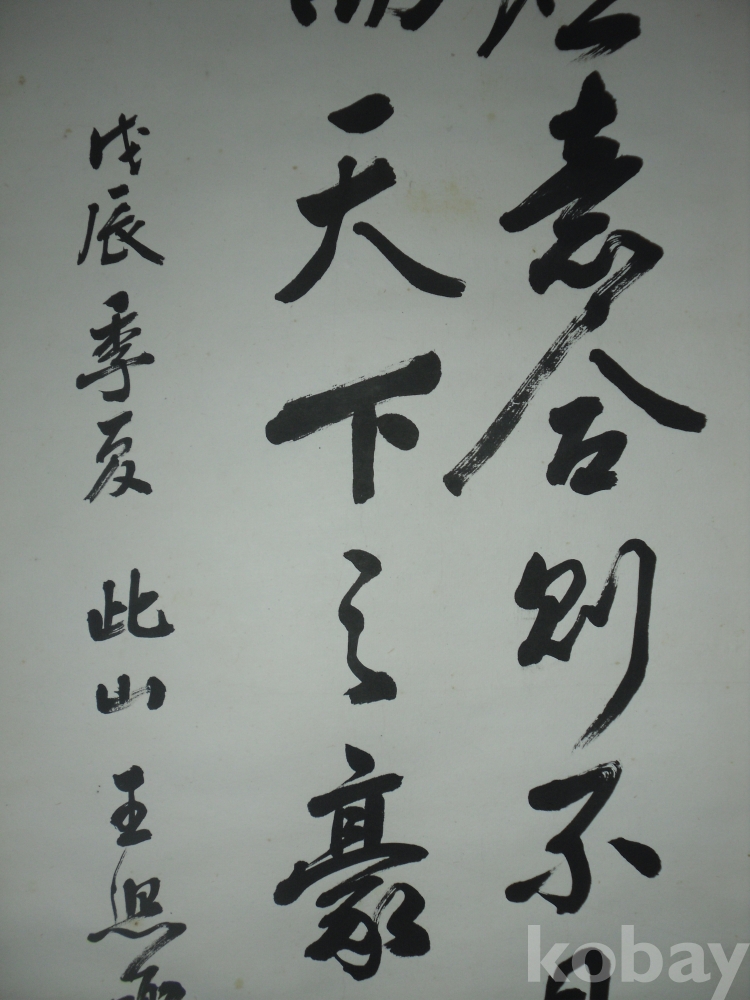 意合則不
天下之豪
戊辰季夏 此山 王
kobay